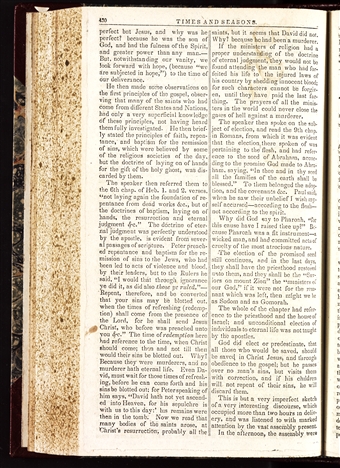 430 TIMES AND SEASONS.
perfect but Jesus, and why was he
perfect? because he was the son of
God, and had the fulness of the Spirit,
and greater power than any man.—
But, notwithstanding our vanity, we
look forward with hope, (because "we
are subjected in hope,") to the time of
our deliverance.
He then made some observations on
the first principles of the gospel, obser-
ving that many of the saints who had
come from different States and Nations,
had only a very superficial knowledge
of these principles, not having heard
them fully investigated. He then brief-
ly stated the principles of faith, repen-
tance, and baptism for the remission
of sins, which were believed by some
of the religious societies of the day,
but the doctrine of laying on of hands
for the gift of the holy ghost, was dis-
carded by them.
The speaker then referred them to
the 6th chap. of Heb. 1 and 2 verses,
"not laying again the foundation of re-
pentance from dead works &c., but of
the doctrines of baptism, laying on of
hands, the resurrection and eternal
judgment &c." The doctrine of eter-
nal judgment was perfectly understood
by the apostle, is evident from sever-
al passages of scripture. Peter preach-
ed repentance and baptism for the re-
mission of sins to the Jews, who had
been led to acts of violence and blood,
by their leaders, but to the Rulers he
said, "I would that through ignorance
ye did it, as did also those ye ruled."—
Repent, therefore, and be converted
that your sins may be blotted out,
when the times of refreshing (redemp-
tion) shall come from the presence of
the Lord, for he shall send Jesus
Christ, who before was preached unto
you &c." The time of redemption here
had reference to the time, when Christ
should come; then and not till then
would their sins be blotted out. Why?
Because they were murderers, and no
murderer hath eternal life. Even Da-
vid, must wait for those times of refresh-
ing, before he can come forth and his
sins be blotted out; for Peter speaking of
him says, "David hath not yet ascend-
ed into Heaven, for his sepulchre is
with us to this day:" his remains were
then in the tomb. Now we read that
many bodies of the saints arose, at
Christ's resurrection, probably all the
saints, but it seems that David did not.
Why? because he had been a murderer.
If the ministers of religion had a
proper understanding of the doctrine
of eternal judgment, they would not be
found attending the man who had for-
feited his life to the injured laws of
his country by shedding innocent blood;
for such characters cannot be forgiv-
en, until they have paid the last far-
thing. The prayers of all the minis-
ters in the world could never close the
gates of hell against a murderer.
The speaker then spoke on the sub-
ject of election, and read the 9th chap.
in Romans, from which it was evident
that the election there spoken of was
pertaining to the flesh, and had refer-
ence to the seed of Abraham, accor-
ding to the promise God made to Abra-
ham, saying, "In thee and in thy seed
all the families of the earth shall be
blessed." To them belonged the adop-
tion, and the covenants &c. Paul said,
when he saw their unbelief I wish my-
self accursed—according to the flesh—
not according to the spirit.
Why did God say to Pharaoh, "for
this cause have I raised thee up?" Be-
cause Pharaoh was a fit instrument—a
wicked man, and had committed acts of
cruelty of the most atrocious nature.
The election of the promised seed
still continues, and in the last days,
they shall have the priesthood restored
unto them, and they shall be the "Sav-
iors on mount Zion" the "ministers of
our God," if it were not for the rem-
nant which was left, then might we be
as Sodom and as Gomorah.
The whole of the chapter had refer-
ence to the priesthood and the house of
Israel; and unconditional election of
individuals to eternal life was not taught
by the apostles.
God did elect or predestinate, that
all those who would be saved, should
be saved in Christ Jesus, and through
obedience to the gospel; but he passes
over no man's sins, but visits them
with correction, and if his children
will not repent of their sins, he will
discard them.
This is but a very imperfect sketch
of a very interesting discourse, which
occupied more than two hours in deliv-
ery, and was listened to with marked
attention by the vast assembly present.
In the afternoon, the assembly were